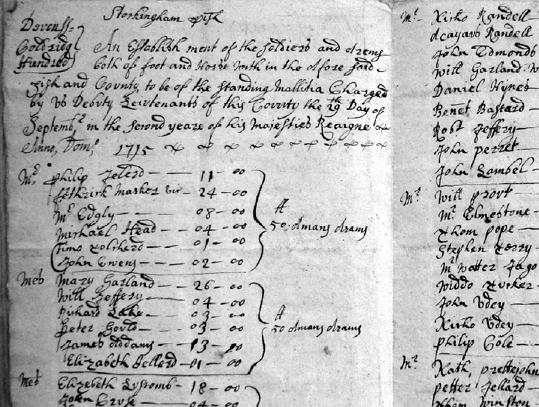 Stokingham psh
Devonss
Colridg
Hundred
An Establish ment of the soldiers and Arems
both of foot and Horse with in the afore said
rish and County to be of the standing Mallitia Charged
by us Debity Lieutenants of this County the 19 Day of
Septembr in the second yeare of his Majesties Reaigne
Anno Dom 1715
Mr philip Jelerd — 11 - 00
Marker vic - 24 - 00
Mr Edgly — 08 - 00
Michael Head — 04 - 00
Timo — 01 - 00
John Owens — 02 - 00
A
50: almans Arams
Meb Mary Garland — 26 - 00
Will Jeffery — 04 - 00
Richard Lake — 03 - 00
Peter — 03 - 00
James Addams — 13 - 00
Elizabeth Jellerd - 01 - 00
A
50 almans Arams
Meb Elizebeth Lyscomb - 18 - 00
John Cruse — 04 - 00
Mr Richo Randell
Randell
John Edmonds
Will Garland
Daniel Hynes
Benet Bastard
Robt Jeffery
John perret
John Lambel
Mr Will prout
Mr Elmestone
Thom pope
Stephen
Mr Walter Jago
Widdo
John Udey
Richo Udey
philip Cole
Mr Nath prettejohn
petter Jellard
Thom Winston